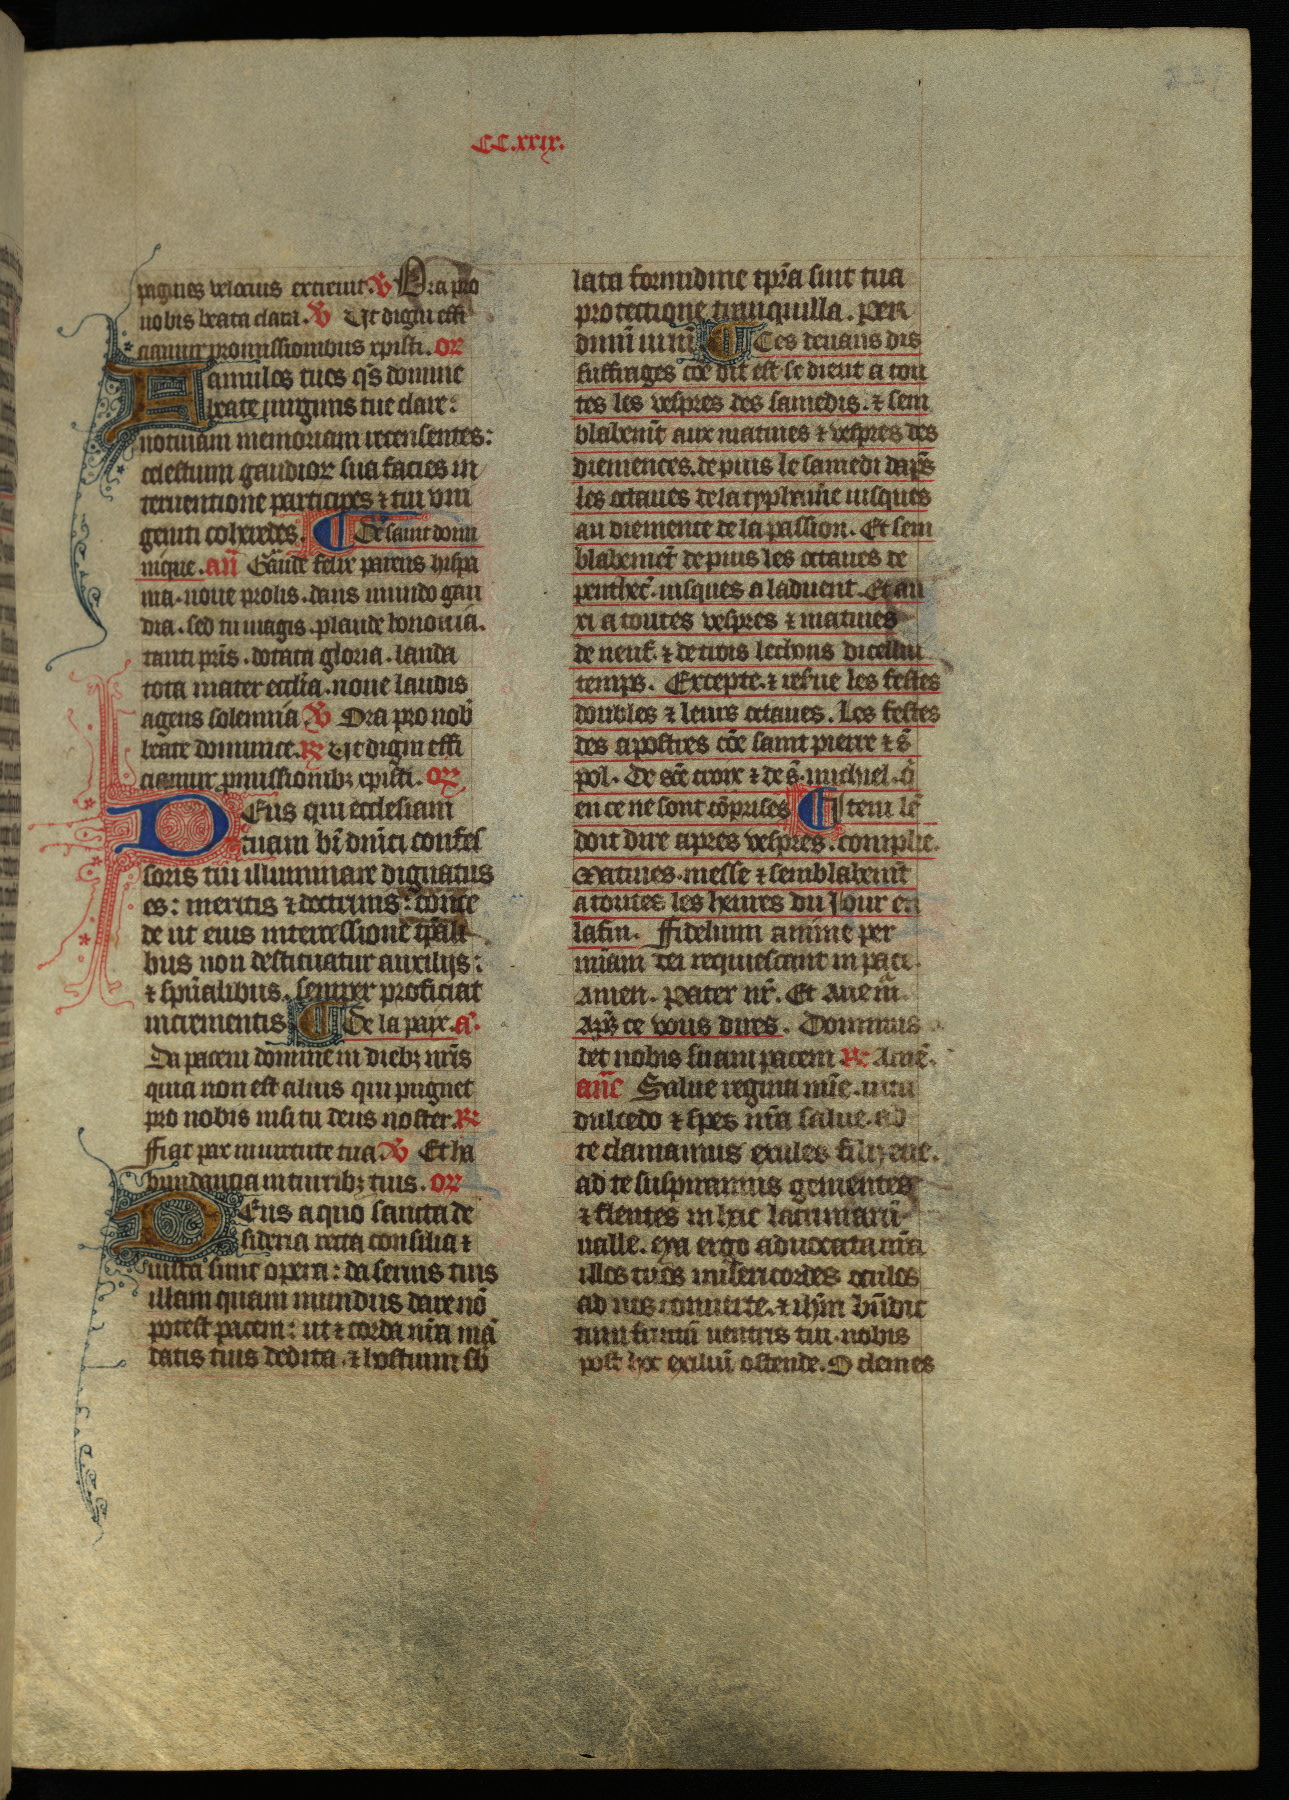 CC.xxix.
pagines velocius exciemt. V Ora pro
nobis beata clara. V Ut digni effi
ciamur promissionibus xpisti. or
Famulos tuos qs domine
beate uirginis tue clare:
uotiuam memoriam recensentes:
celestium gaudior sua facies in
teruentione participes ⁊ tui vni
geniti coheredes. De saint domi
nique. añ Gaude felix parens hispa
nia. noue prolis. dans mundo gau
dia. sed tu magis. plaude bononia.
tanti pris. dotata gloria. lauda
tota mater ecclia. noue laudis
agens solennia V Ora pro nob
beate dominice. R Ut digni effi
ciamur pmissionibz xpisti. or
Deus qui ecclesiam
tuam bi dnici confes
soris tui illuminare dignatus
es: meritis ⁊ doctrinis: conce
de ut eius intercessione tpali
bus non destituatur auxilijs:
⁊ spualibus. semper proficiat
incrementis De la paix. a.
Da pacem domine in diebz nris
quia non est alius qui pugnet
pro nobis nisi tu deus noster. R
Fiat pax in uirtute tua. V Et ha
bundantia in turribz tuis. or
Deus a quo sancta de
sideria recta consilia ⁊
iusta sunt opera: da seruis tuis
illam quam mundus dare nō
potest pacem: ut ⁊ corda nra mā
datis tuis dedita. ⁊ hostium sb
lata formidine tpra sint tua
protectione tranquilla. Per
dnm Ces deuans dis
suffrages cōe dit est se dient a tou
tes les vespres des samedis. ⁊ sem
blabemt aux matines ⁊ vespres des
diemences. depuis le samedi daps
les octaues de la typhaine iusques
au diemence de la passion. Et sem
blabemet depuis les octaues de
penthec. iusques a laduent. Et au
xi a toutes vespres ⁊ matines
de neuf. ⁊ de trois lechons dicellui
temps. Excepte. ⁊ refue les festes
doubles ⁊ leurs octaues. Les festes
des apostres cōe saint pierre ⁊ s
pol. De sce croix ⁊ de s. michiel. q
en ce ne sont cōprises Item le
doit dire apres vespres. complie.
Matines. messe ⁊ semblabemt
a toutes les heures du Jour en
latin. Fidelium anime per
miam dei requiescant in pace.
Amen. Pater nr. Et Aue m.
Aps ce vous dires. Dominus
det nobis suam pacem R Ame.
añe Salue regina mie. uita
dulcedo ⁊ spes nra salue. ad
te clamamus exules filij eue.
ad te suspiramus gementes
⁊ flentes in hac lacrimarū
ualle. eya ergo aduocata nra
illos tuos misericordes oculos
ad nos conuerte. ⁊ ihm bndic
tum fructū uentris tui. nobis
post hoc exiliū ostende. O clemes